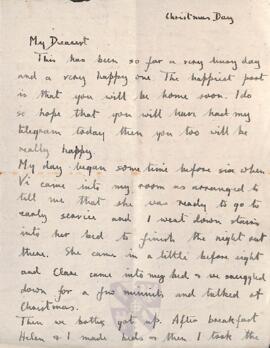 Christmas Day
My Dearest
This has been so far a very busy day
and a very happy one. The happiest part
is that you will be home soon. I do
so hope that you will have had my
telegram today then you too will be
really happy.
My day began some time before six when
Vi came into my room as arranged to
tell me that she was ready to go to
early service and I went down stairs
into her bed to finish the night out
there. She came in a little before eight
and Clare came into my bed & we snuggled
down for a few minutes and talked of
Christmas.
Then we both got up. After breakfast
Helen & I made beds & then I took the